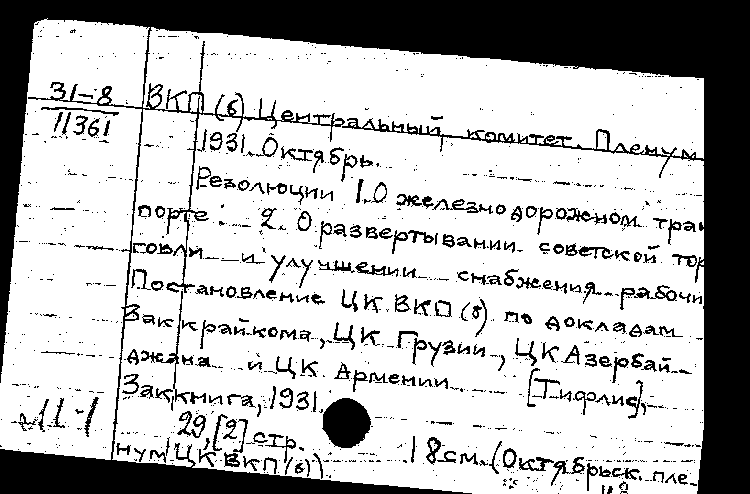 31-8
11361
ВКП(б) Центральный комитет. Пленум
1931. Октябрь.
Резолюции 1. О железнодорожном тран
порте. 2. О развертывании советской тор
говли и улучшении снабжения рабочи
Постановление ЦК ВКП(б) по докладам
Заккрайкома, ЦК Грузии, ЦК Азербай-
джана и ЦК Армении. [Тифлис],
Заккнига, 1931.
29, [2] стр. 18см. (Октябрьск. пле-
нум ЦК ВКП(б)).